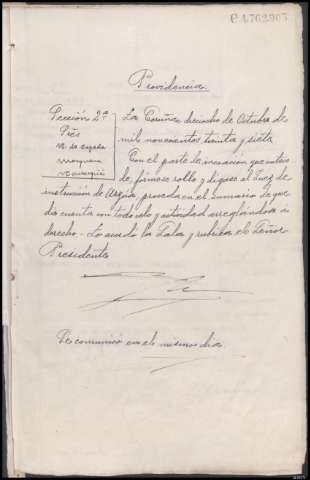 C 1.762.905
Providencia
Sección 2ª
La Coruña dieciocho de Octubre de
mil novecientos treinta y siete
Con el parte de incoación que antece-
de, fórmese rollo y dígase al Juez de
instrucción de proceda en el sumario de que
dá cuenta con todo celo y actividad arreglándose a
derecho. Lo acordó la Sala y rubrica el Señor
Presidente
Se comunicó en el mismo dia